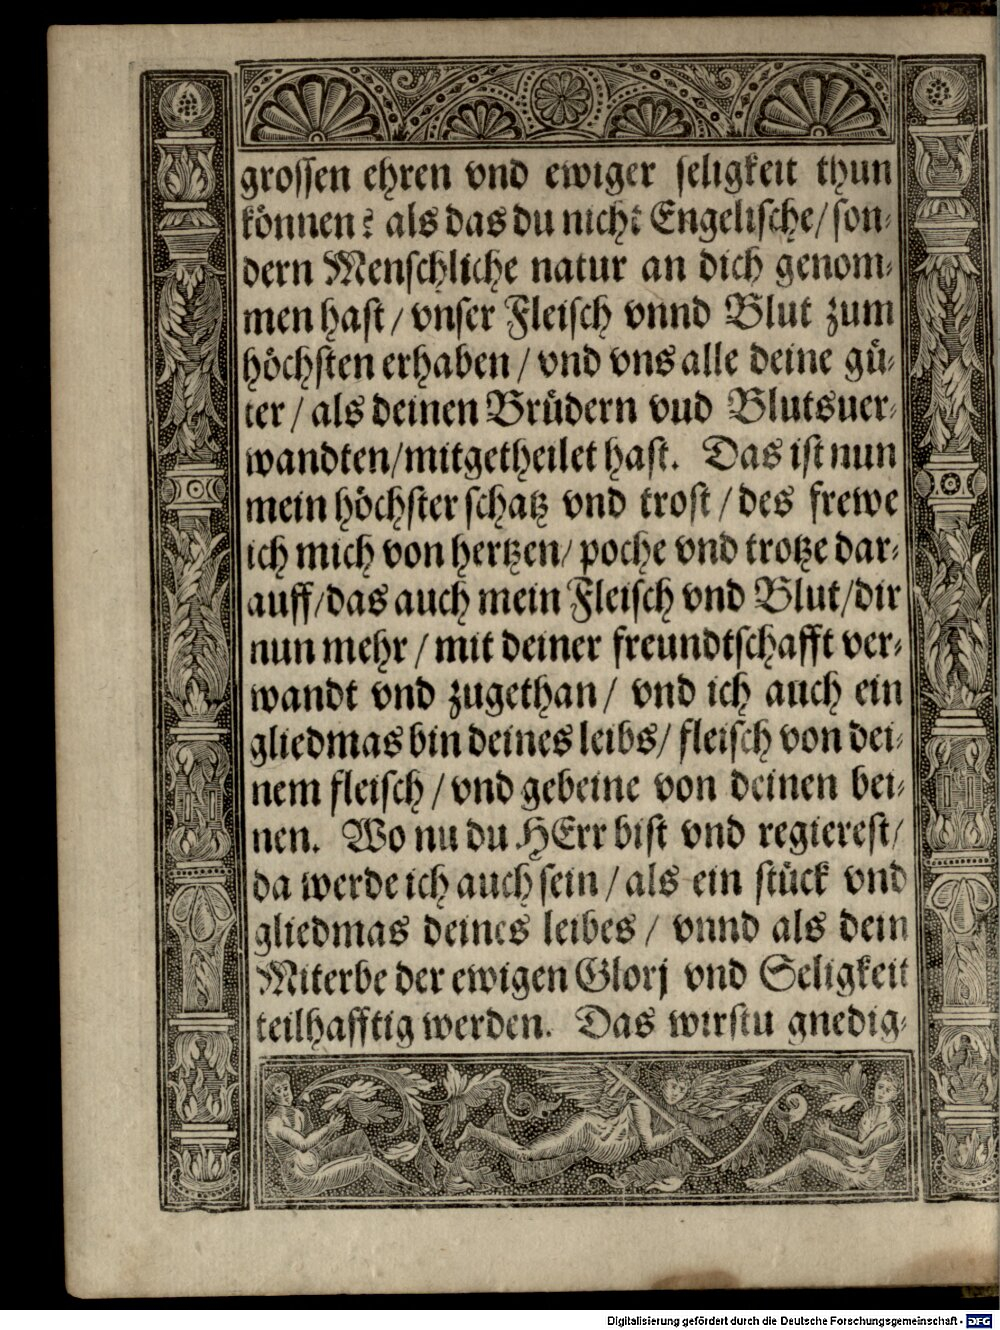 grossen ehren vnd ewiger seligkeit thun
können? als das du nicht Engelische/ son-
dern Menschliche natur an dich genom-
men hast/ vnser Fleisch vnnd Blut zum
höchsten erhaben/ vnd vns alle deine gü-
ter/ als deinen Brüdern vud Blutsuer-
wandten/mitgetheilet hast. Das ist nun
mein höchster schatz vnd trost/ des frewe
ich mich von hertzen/ poche vnd trotze dar-
auff/das auch mein Fleisch vnd Blut/dir
nun mehr/ mit deiner freundtschafft ver-
wandt vnd zugethan/ vnd ich auch ein
gliedmas bin deines leibs/ fleisch von dei-
nem fleisch/ vnd gebeine von deinen bei-
nen. Wo nu du HErr bist vnd regierest/
da werde ich auch sein/ als ein stück vnd
gliedmas deines leibes/ vnnd als dein
Miterbe der ewigen Glorj vnd Seligkeit
teilhafftig werden. Das wirstu gnedig-
Digitalisierung gefördert durch die Deutsche Forschungsgemeinschaft - DFG